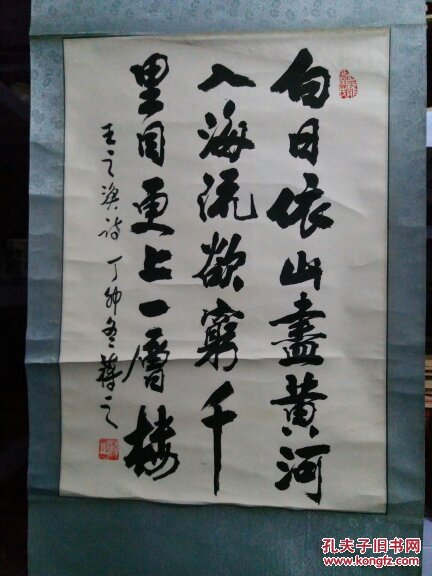 白日依山盡黄河
入海流欲窮千
里目更上一層樓
王之渙诗 丁卯冬
孔夫子旧书网
www.kongfz.com